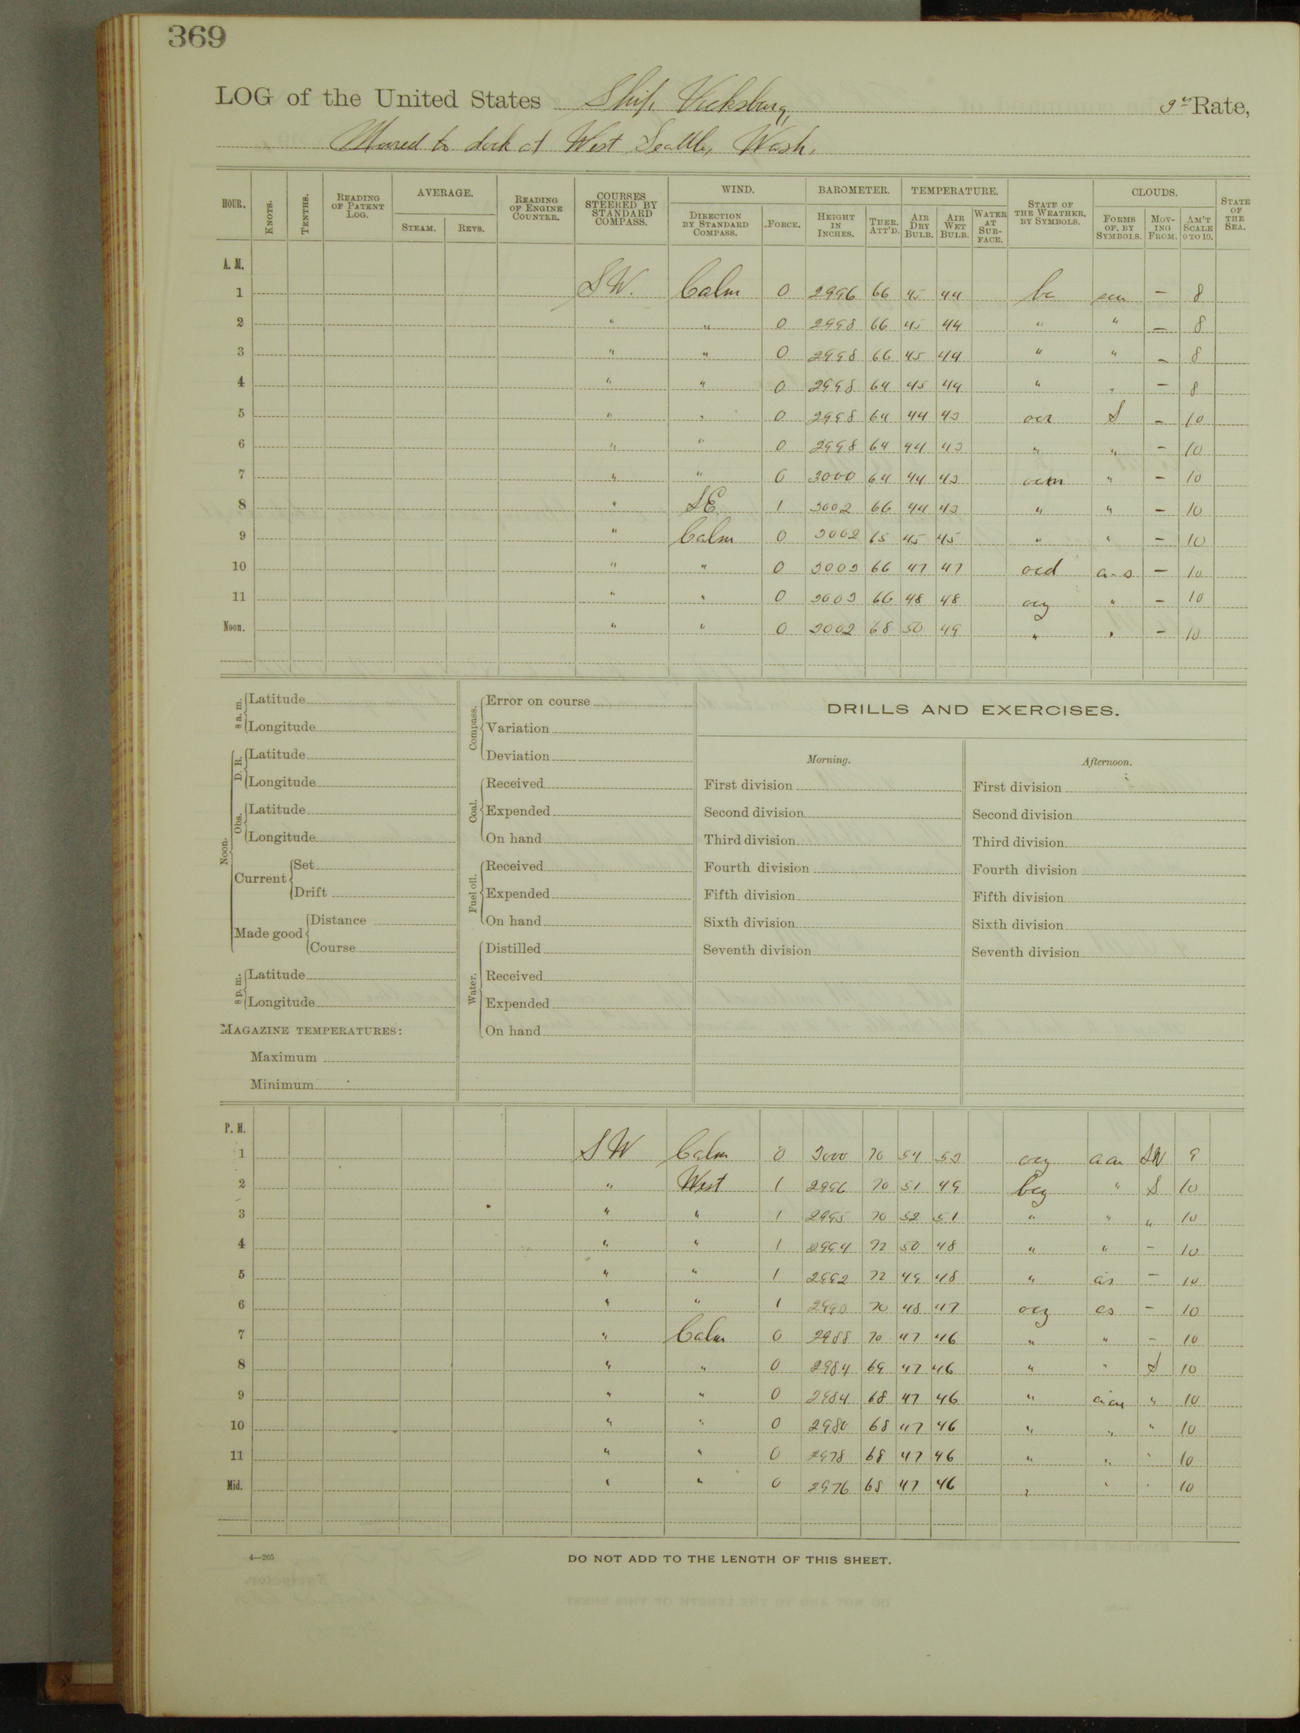 369
LOG of the United States Ship Vicksburg, Rate,
Moored to dock at West Seattle, Wash.
HOUR. KNOTS. TENTHS. READING OF PATENT LOG. AVERAGE. STEAM. REVS. READING OF ENGINE COUNTER. COURSES STEERED BY STANDARD COMPASS. WIND. DIRECTION BY STANDARD COMPASS. FORCE. BAROMETER. HEIGHT IN INCHES. THER. ATT'D. TEMPERATURE. AIR DRY BULB. AIR WET BULB. WATER AT SURFACE. STATE OF THE WEATHER, BY SYMBOLS. CLOUDS. FORMS OF, BY SYMBOLS. MOVING FROM. AM'T SCALE 0 TO 10. STATE OF THE SEA.
A. M.
1 SW. Calm 0 2996 66 45 44 bc — 8
2 " " 0 2998 66 45 44 " " — 8
3 " " 0 2998 66 45 44 " " — 8
4 " " 0 2998 64 45 44 " " — 8
5 " " 0 2998 64 44 43 S — 10
6 " " 0 2998 64 44 43 " " — 10
7 " " 0 3000 64 44 43 ocm " — 10
8 " SE 1 3002 66 44 43 " " — 10
9 " Calm 0 3002 65 45 45 " " — 10
10 " " 0 3003 66 47 47 ocd a-s — 10
11 " " 0 3003 66 48 48 ocg " — 10
Noon. " " 0 3002 68 50 49 " " — 10
8 a. m. Latitude
Longitude
Noon. D. R. Latitude
Longitude
Obs. Latitude
Longitude
Current Set
Drift
Made good Distance
Course
8 p. m. Latitude
Longitude
MAGAZINE TEMPERATURES:
Maximum
Minimum
Compass. Error on course
Variation
Deviation
Coal. Received
Expended
On hand
Fuel oil. Received
Expended
On hand
Water. Distilled
Received
Expended
On hand
DRILLS AND EXERCISES.
Morning.
First division
Second division
Third division
Fourth division
Fifth division
Sixth division
Seventh division
Afternoon.
First division
Second division
Third division
Fourth division
Fifth division
Sixth division
Seventh division
P. M.
1 SW Calm 0 3000 70 54 53 ocg acu SW 9
2 " West 1 2996 70 51 49 bcg " S 10
3 " " 1 2995 70 52 51 " " " 10
4 " " 1 2994 72 50 48 " " — 10
5 " " 1 2992 72 49 48 " as — 10
6 " " 1 2990 70 48 47 ocg cs — 10
7 " Calm 0 2988 70 47 46 " " — 10
8 " " 0 2984 69 47 46 " " S 10
9 " " 0 2984 68 47 46 " " 10
10 " " 0 2980 68 47 46 " " " 10
11 " " 0 2978 68 47 46 " " " 10
Mid. " " 0 2976 68 47 46 " " " 10
4—205
DO NOT ADD TO THE LENGTH OF THIS SHEET.